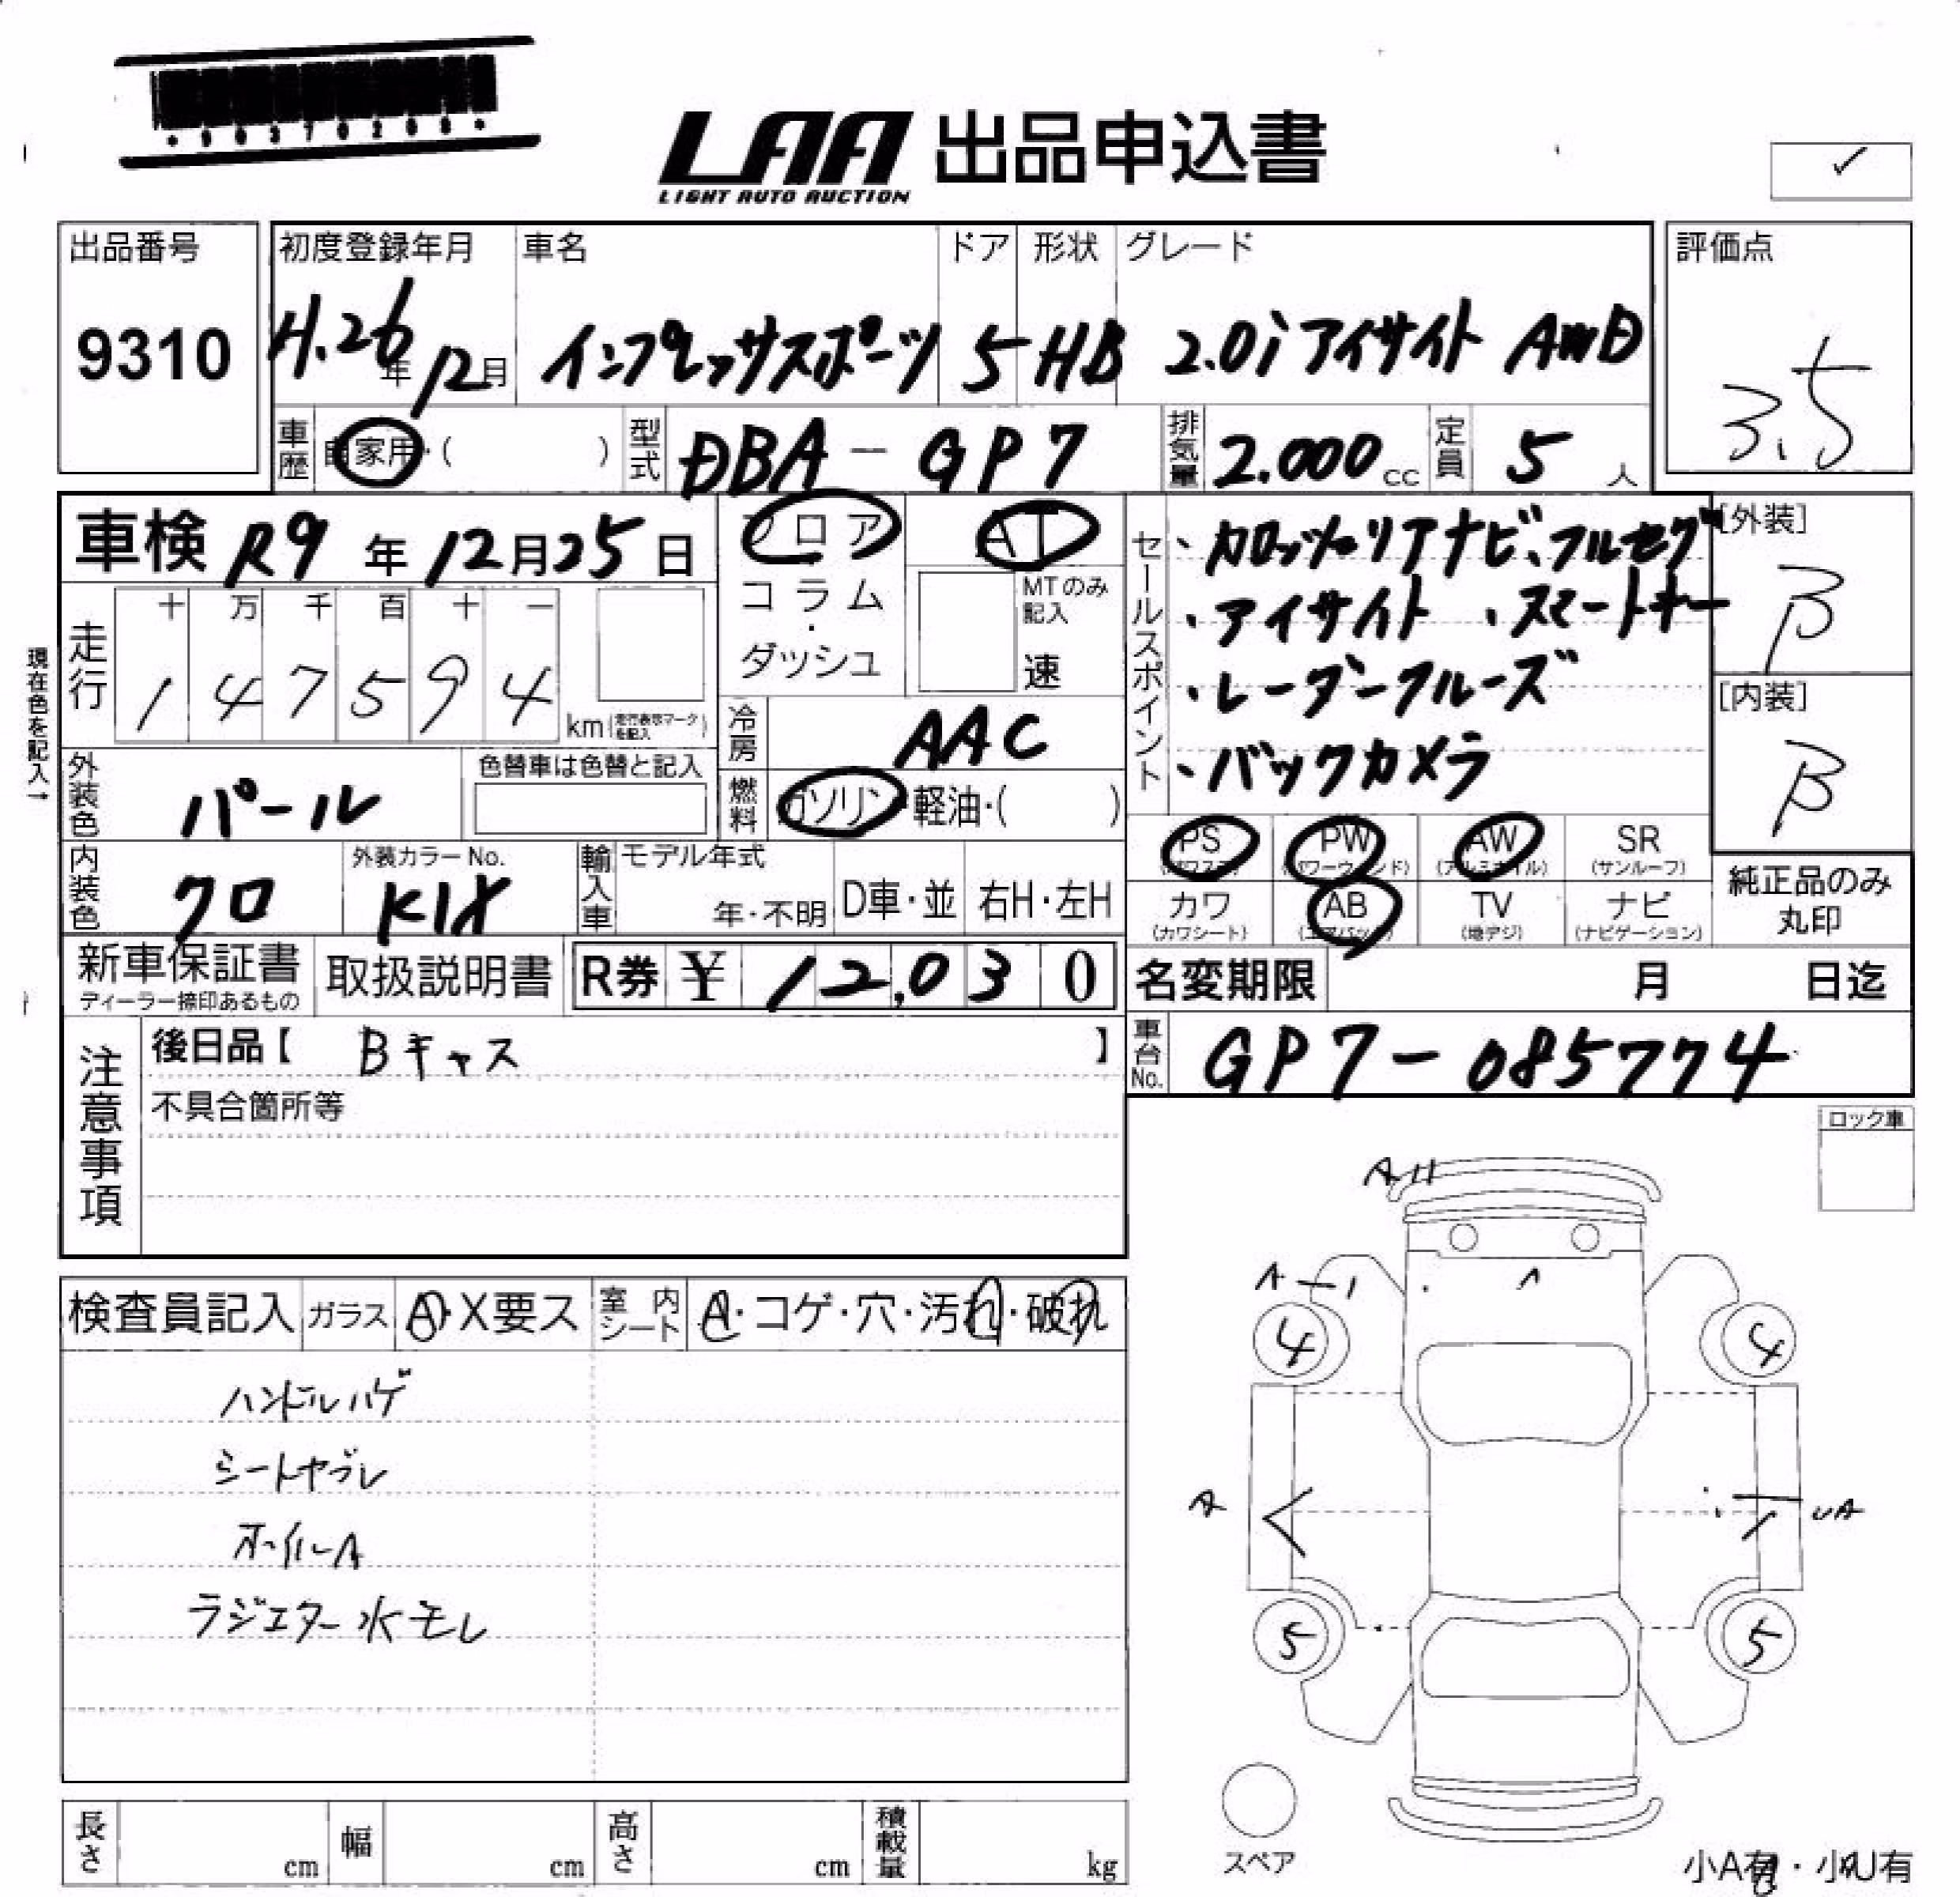 *90370208*
LAA 出品申込書
LIGHT AUTO AUCTION
✓
出品番号
9310
初度登録年月 車名 ドア 形状 グレード
H.26年12月 インプレッサスポーツ 5 HB 2.0i アイサイト AWD
評価点
3.5
車歴 自家用・( ) 型式 DBA-GP7 排気量 2.000cc 定員 5人
車検 R9年12月25日
フロア・コラム・ダッシュ
AT
MTのみ記入
速
セールスポイント
・カロッツェリアナビ、フルセグ
・アイサイト ・スマートキー
・レーダークルーズ
・バックカメラ
[外装]
B
[内装]
B
現在色を記入→
走行
十 万 千 百 十 一
1 4 7 5 9 4 km(走行表示マークを記入)
冷房 AAC
外装色 パール 色替車は色替と記入
燃料 ガソリン・軽油・( )
内装色 クロ 外装カラーNo. K1X
輸入車 モデル年式 年・不明 D車・並 右H・左H
PS (パワステ) PW (パワーウィンド) AW (アルミホイル) SR (サンルーフ)
カワ (カワシート) AB (エアバッグ) TV (地デジ) ナビ (ナビゲーション)
純正品のみ丸印
新車保証書 ディーラー捺印あるもの 取扱説明書 R券 ¥ 12,030
名変期限 月 日迄
車台No. GP7-085774
注意事項
後日品【 Bキャス 】
不具合箇所等
ロック車
検査員記入 ガラス A・X要ス 室内シート A・コゲ・穴・汚れ・破れ
ハンドルハゲ
シートヤブレ
ホイルA
ラジエター水モレ
A
A-1
4 4
A
UA
5 5
スペア
長さ cm 幅 cm 高さ cm 積載量 kg
小A有・小U有